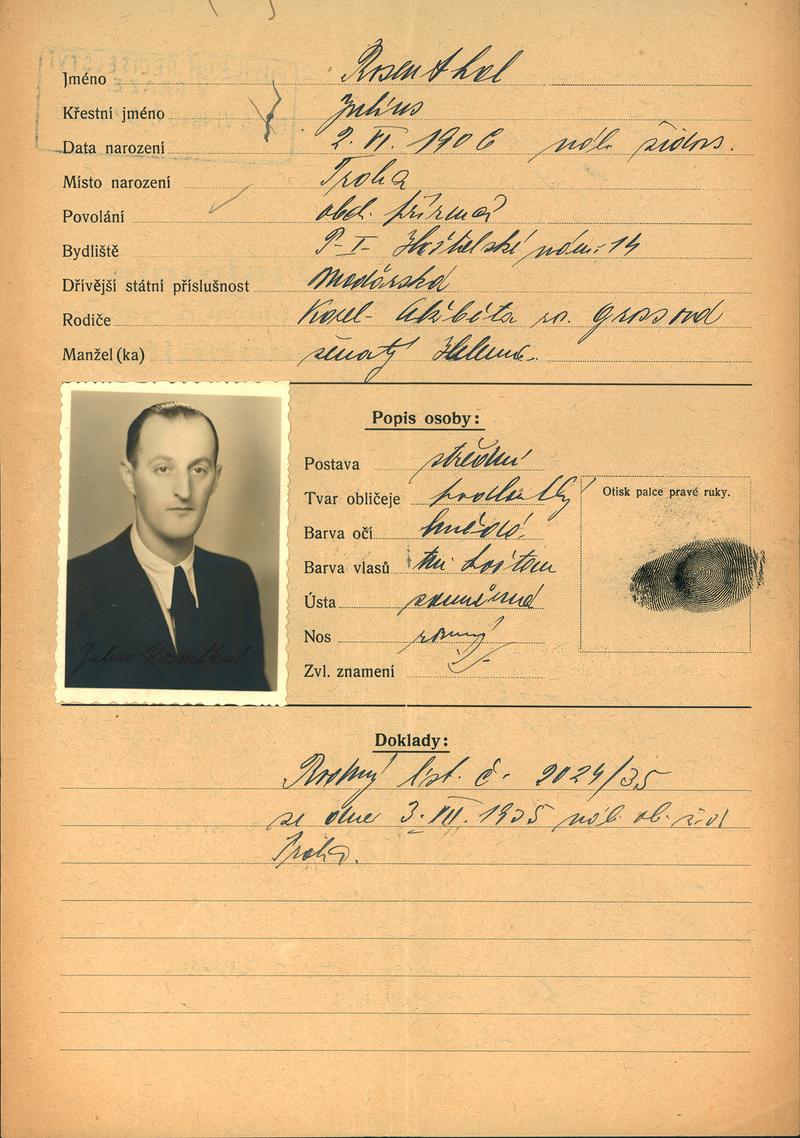 Jméno Rosenthal
Křestní jméno Julius
Data narození 2. VI. 1906 náb. židov.
Místo narození Praha
Povolání obch. příručí
Bydliště P-I- Haštalské nám. 14
Dřívější státní příslušnost Maďarská
Rodiče Karel- Alžběta roz.
Manžel(ka) ženatý Helena.
Popis osoby:
Postava střední
Tvar obličeje podlouhlý
Otisk palce pravé ruky.
Barva očí hnědé
Barva vlasů kaštan
Ústa souměrné
Nos rovný
Zvl. znamení
Julius Rosenthal
Doklady:
Rodný list. č. 2024/35
ze dne 3. VII. 1935 náb. ob. žid
Praha.